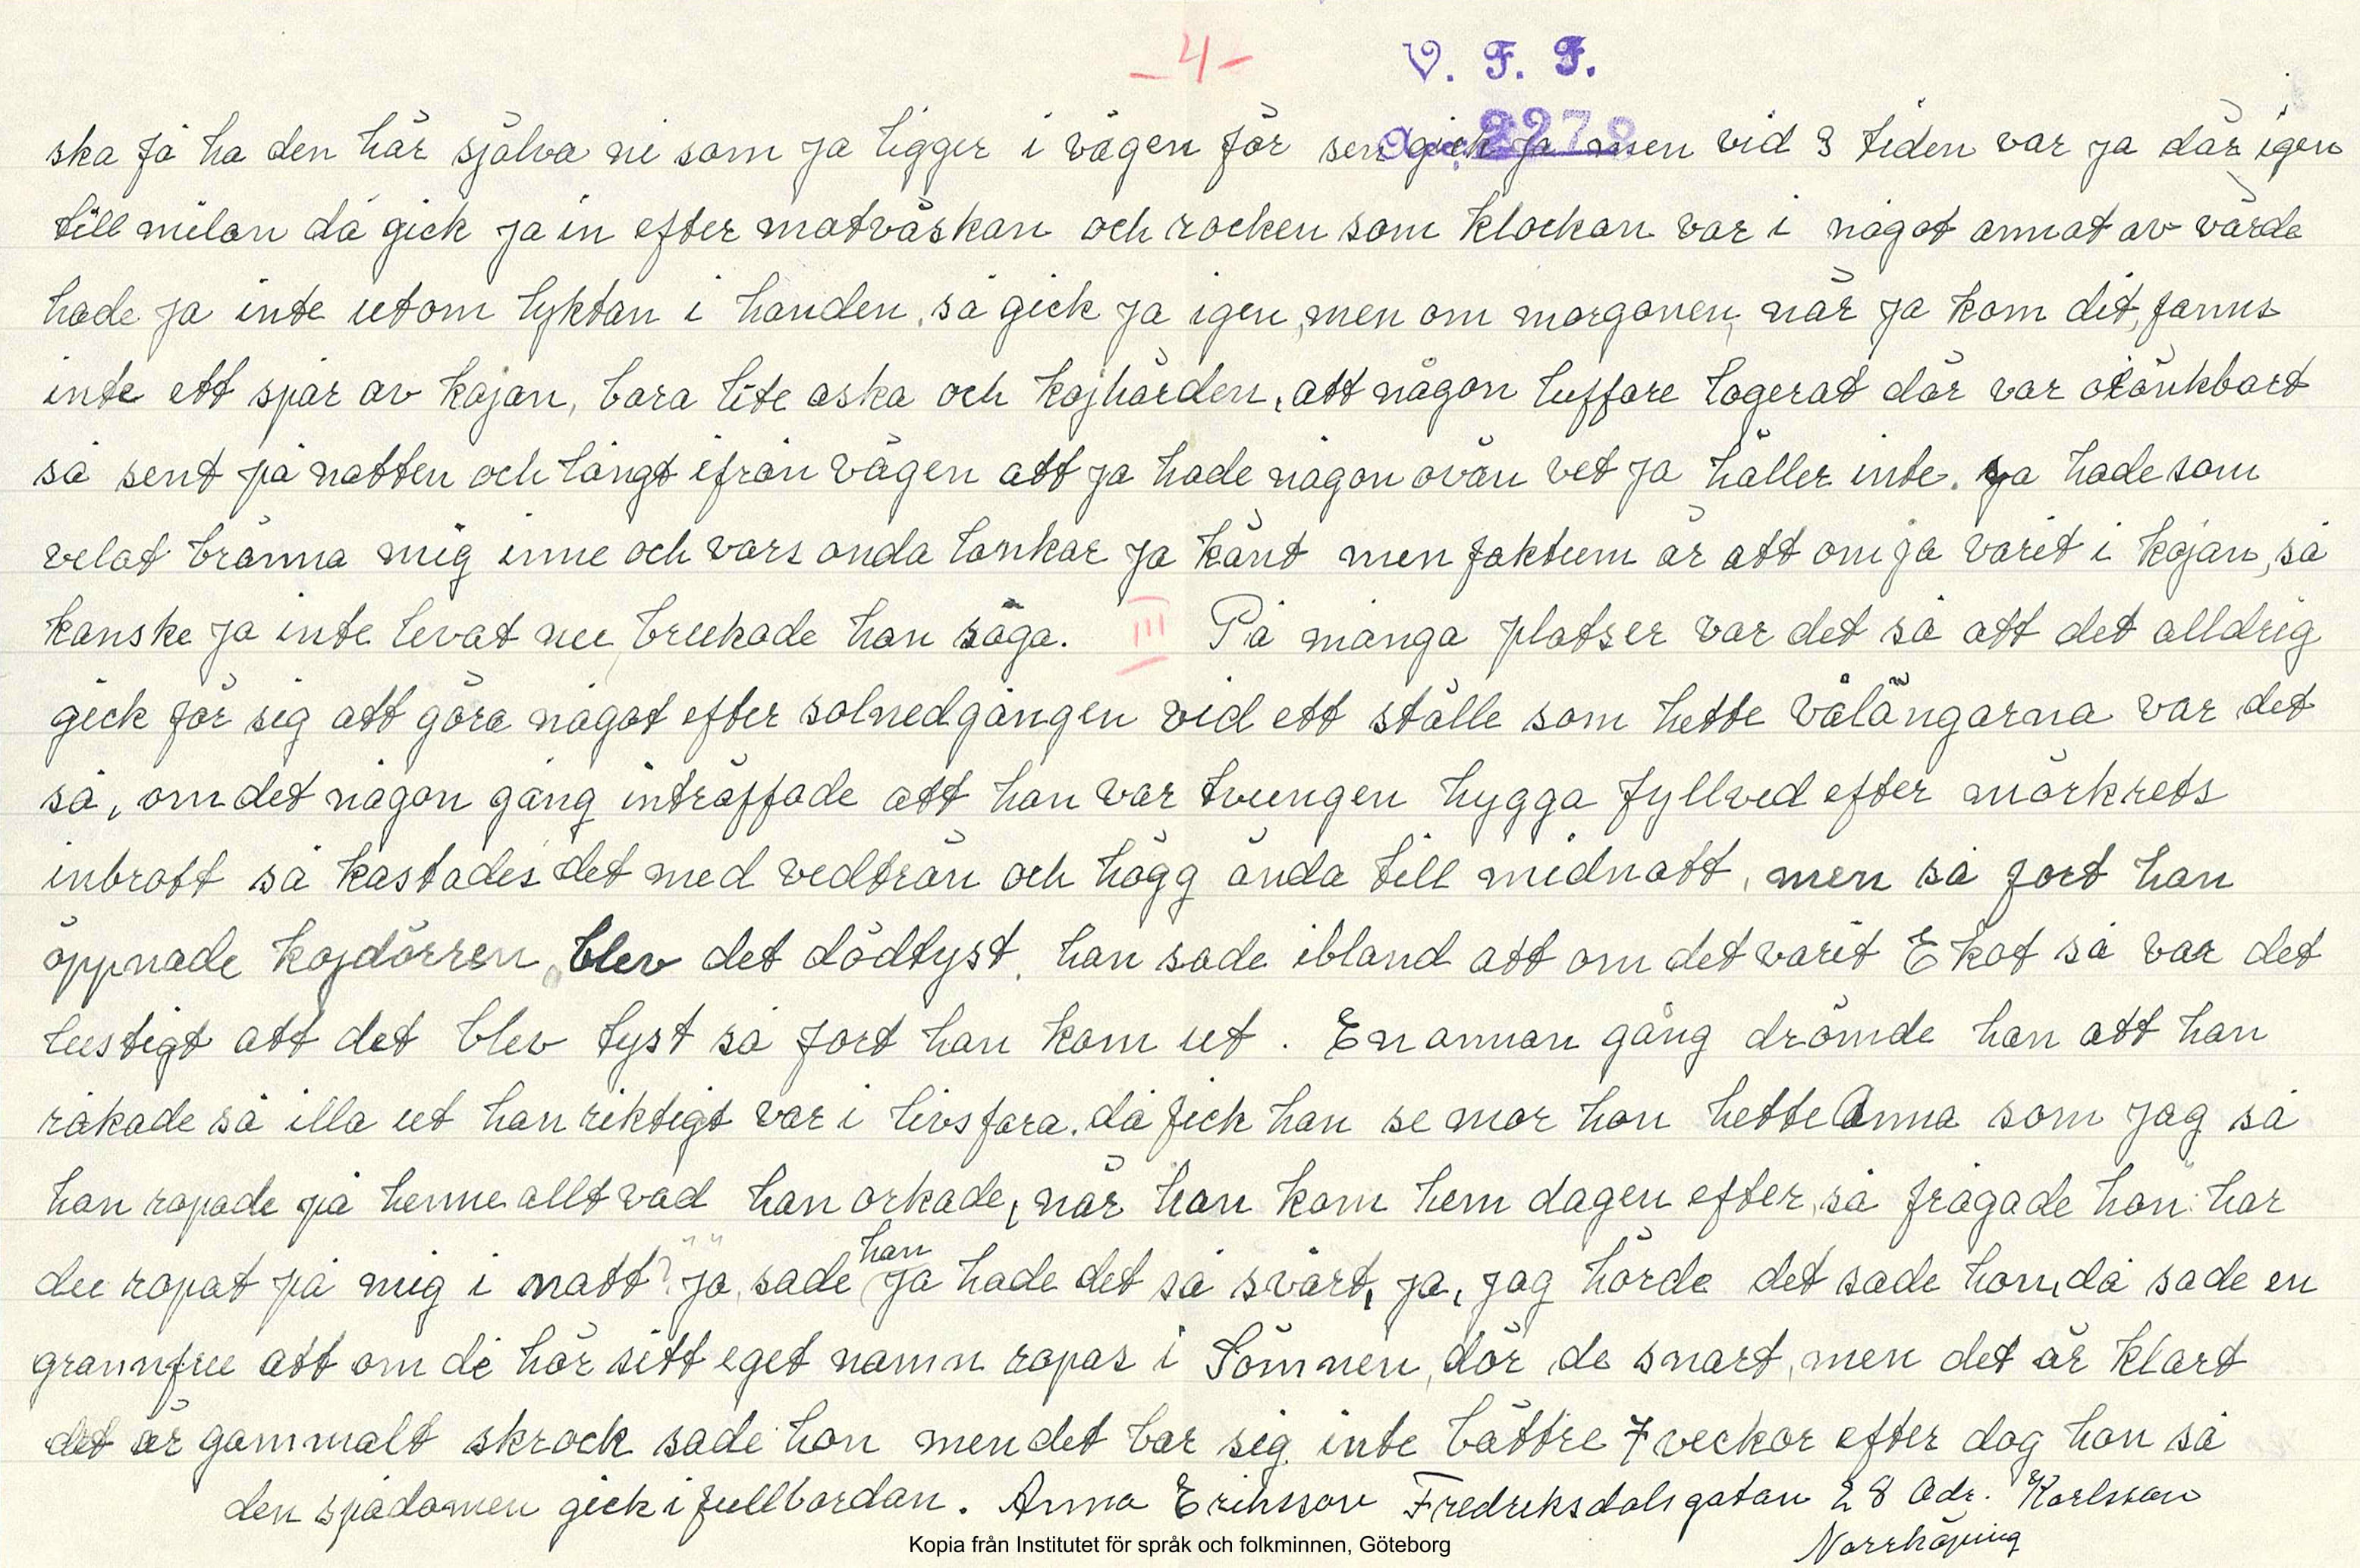 -4-
V. F. F.
2278
ska få ha den här själva ni som ja ligger i vägen för sen gick ja men vid 3 tiden var ja där igen
till milan då gick ja in efter matväskan och rocken som klockan var i något annat av värde
hade ja inte utom lyktan i handen, så gick ja igen, men om morgonen, när ja kom dit, fanns
inte ett spår av kojan, bara lite aska och kojhärden, att någon luffare logerat där var otänkbart
så sent på natten och långt ifrån vägen att ja hade någon ovän vet ja häller inte. ja hade som
velat bränna mig inne och vars onda tankar ja känt men faktum är att om ja varit i kojan, så
kanske ja inte levat nu, brukade han säga. III På många platser var det så att det alldrig
gick för sig att göra något efter solnedgången vid ett ställe som hette Välängarna var det
så, om det någon gång inträffade att han var tvungen hygga fyllved efter mörkrets
inbrott så kastades det med vedträn och högg ända till midnatt, men så fort han
öppnade kojdörren, blev det dödtyst, han sade ibland att om det varit Ekot så var det
lustigt att det blev tyst så fort han kom ut. En annan gång drömde han att han
råkade så illa ut han riktigt var i livsfara. då fick han se mor hon hette Anna som jag så
han ropade på henne allt vad han orkade, när han kom hem dagen efter, så frågade hon: har
du ropat på mig i natt? ja, sade han ja hade det så svårt, ja, jag hörde det sade hon, då sade en
grannfru att om de hör sitt eget namn ropas i Sömnen, dör de snart, men det är klart
det är gammalt skrock sade hon men det bar sig inte bättre 7 veckor efter dog hon så
den spådomen gick i fullbordan. Anna Eriksson Fredriksdalsgatan 28 Adr. Karlsson
Norrköping
Kopia från Institutet för språk och folkminnen, Göteborg